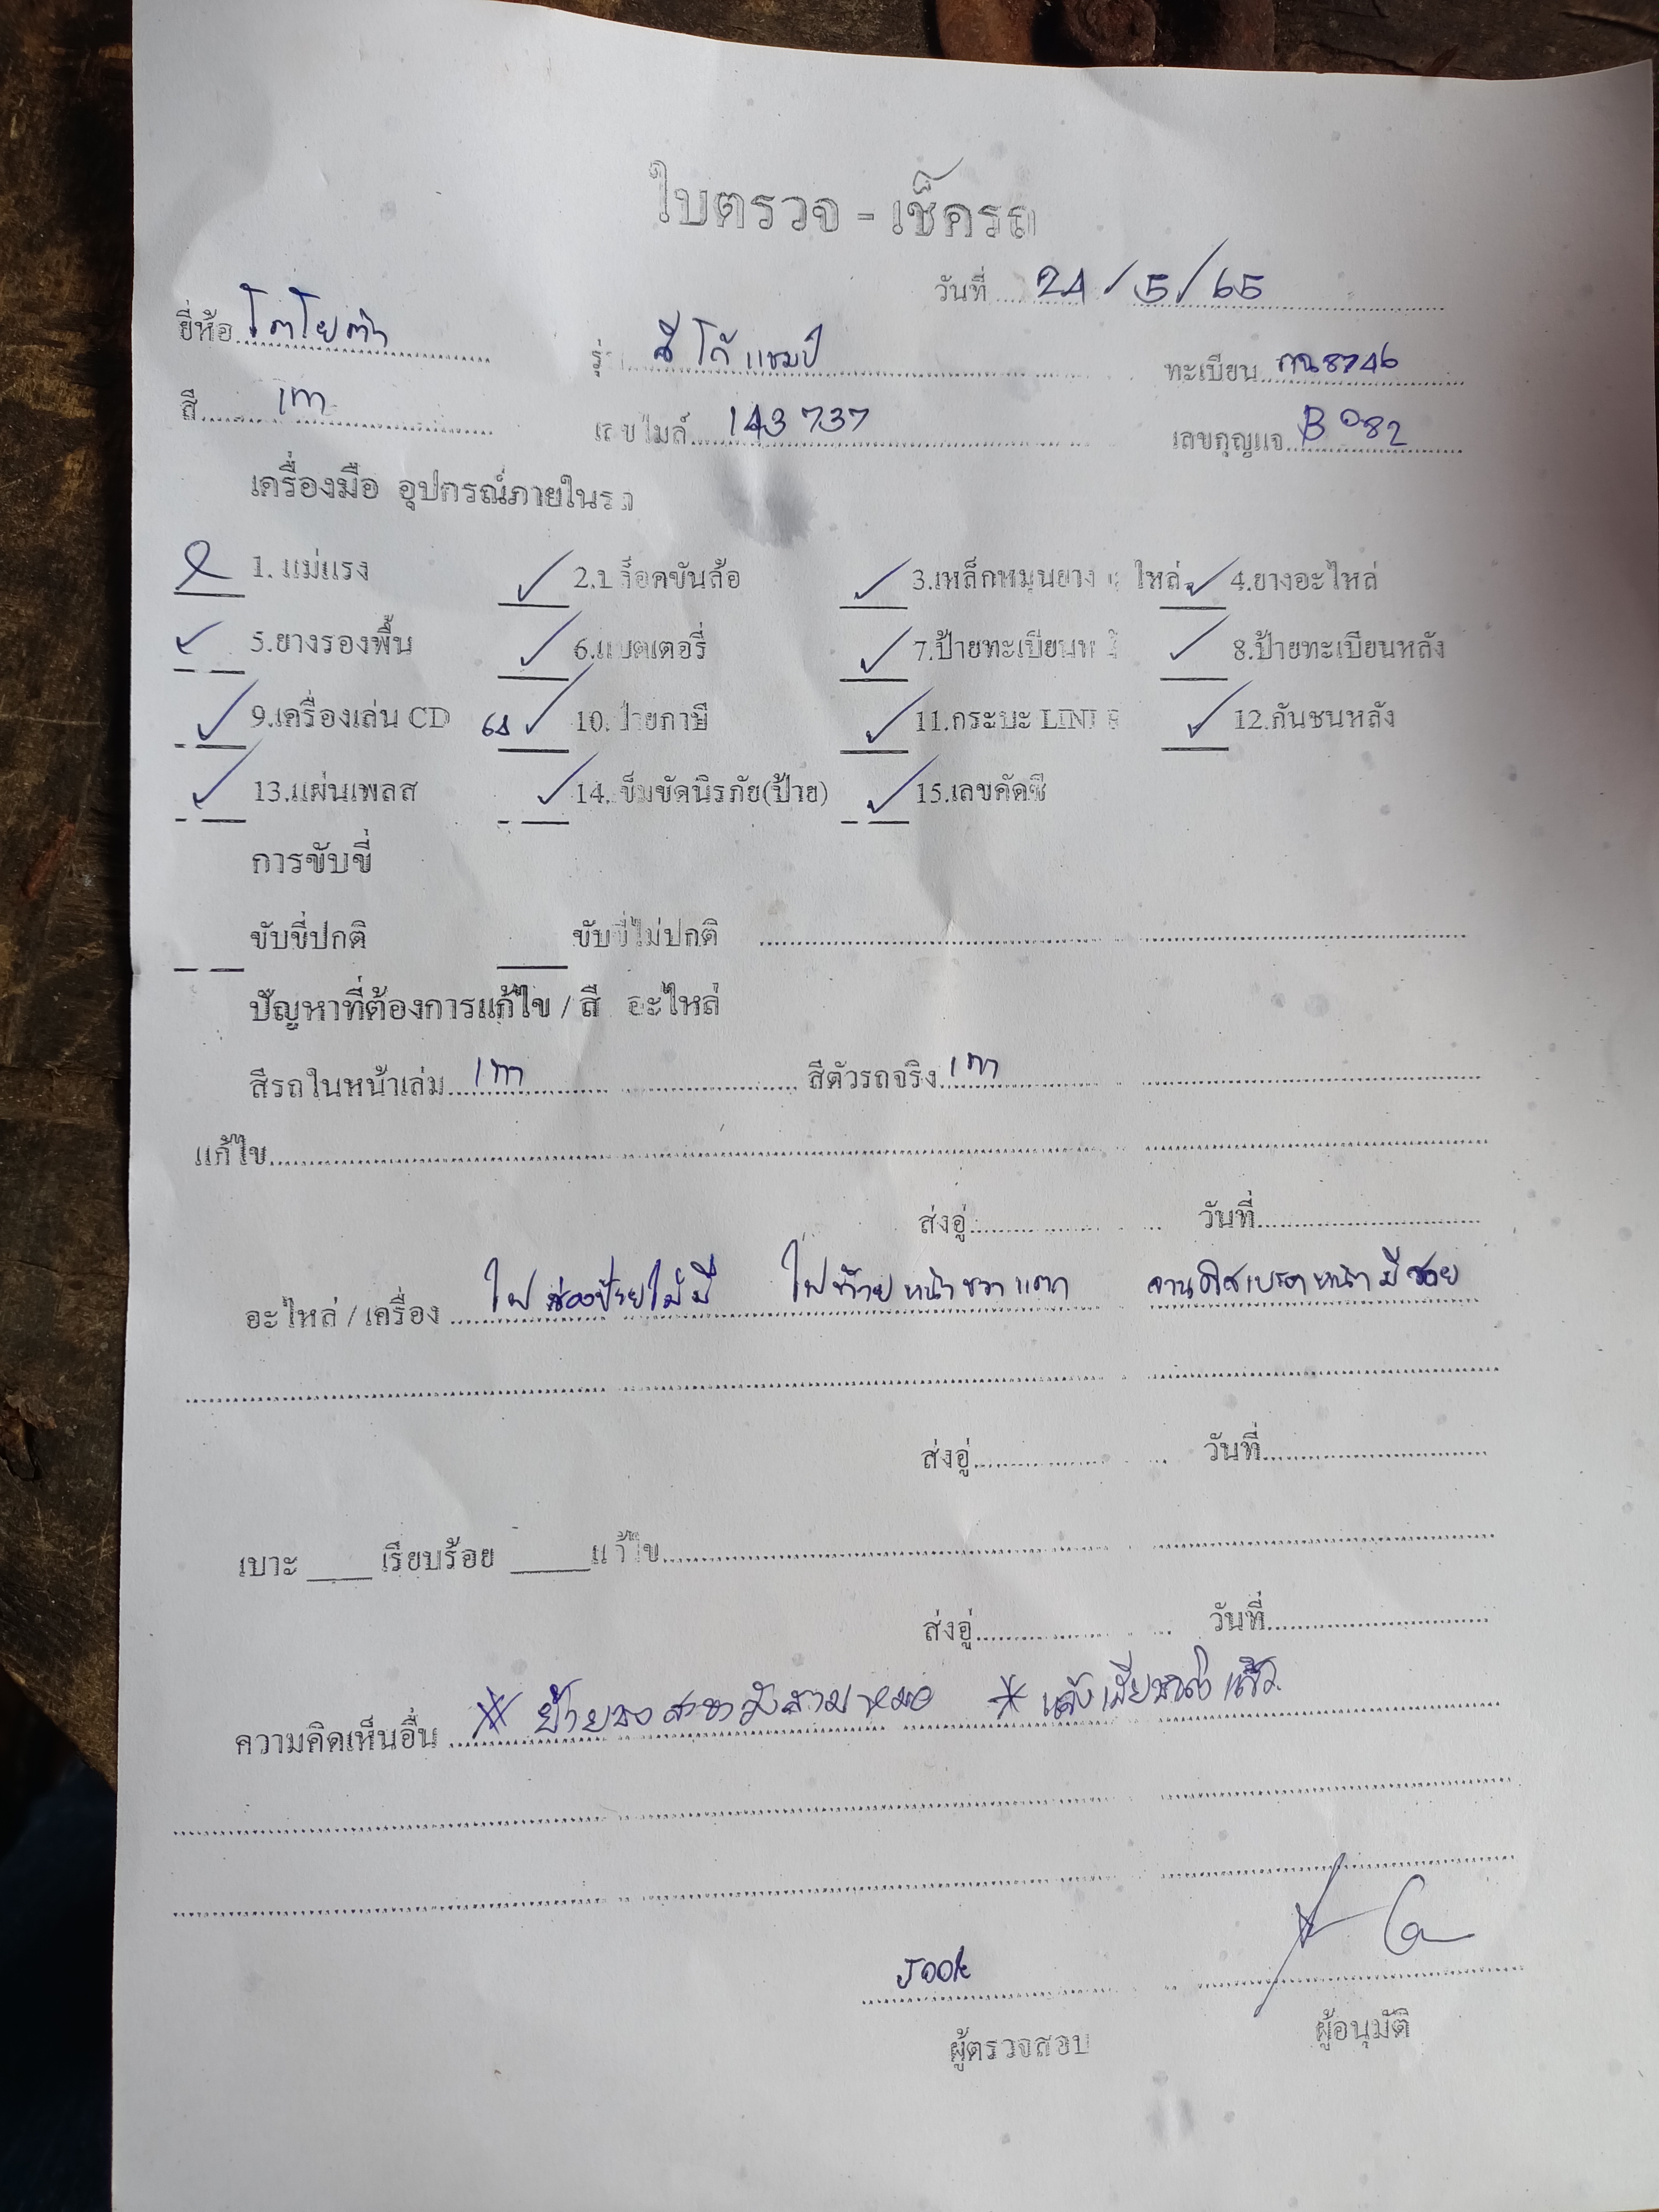 ใบตรวจ - เช็ครถ
วันที่ 24/5/65
ยี่ห้อ โตโยต้า รุ่น วีโก้ แชมป์ ทะเบียน 8746
สี เทา เลขไมล์ 143737 เลขกุญแจ B082
เครื่องมือ อุปกรณ์ภายในรถ
1. แม่แรง ✓ 2. ล็อคขันล้อ ✓ 3.เหล็กหมุนยางอะไหล่ ✓ 4.ยางอะไหล่
✓ 5.ยางรองพื้น ✓ 6.แบตเตอรี่ ✓ 7.ป้ายทะเบียนหน้า ✓ 8.ป้ายทะเบียนหลัง
✓ 9.เครื่องเล่น CD 64 ✓ 10. ป้ายภาษี ✓ 11.กระบะ LINER ✓ 12.กันชนหลัง
✓ 13.แผ่นเพลส ✓ 14. เข็มขัดนิรภัย(ป้าย) ✓ 15.เลขคัดซี
การขับขี่
ขับขี่ปกติ ขับขี่ไม่ปกติ
ปัญหาที่ต้องการแก้ไข / สี อะไหล่
สีรถในหน้าเล่ม เทา สีตัวรถจริง เทา
แก้ไข
ส่งอู่ วันที่
อะไหล่ / เครื่อง ไฟส่องป้ายไม่มี ไฟท้าย หน้า ขวา แตก จานดิสเบรคหน้ามีรอย
ส่งอู่ วันที่
เบาะ เรียบร้อย แก้ไข
ส่งอู่ วันที่
ความคิดเห็นอื่น * ย้ายลง สาขาวังสามหมอ * แล้ว
Jook
ผู้ตรวจสอบ ผู้อนุมัติ